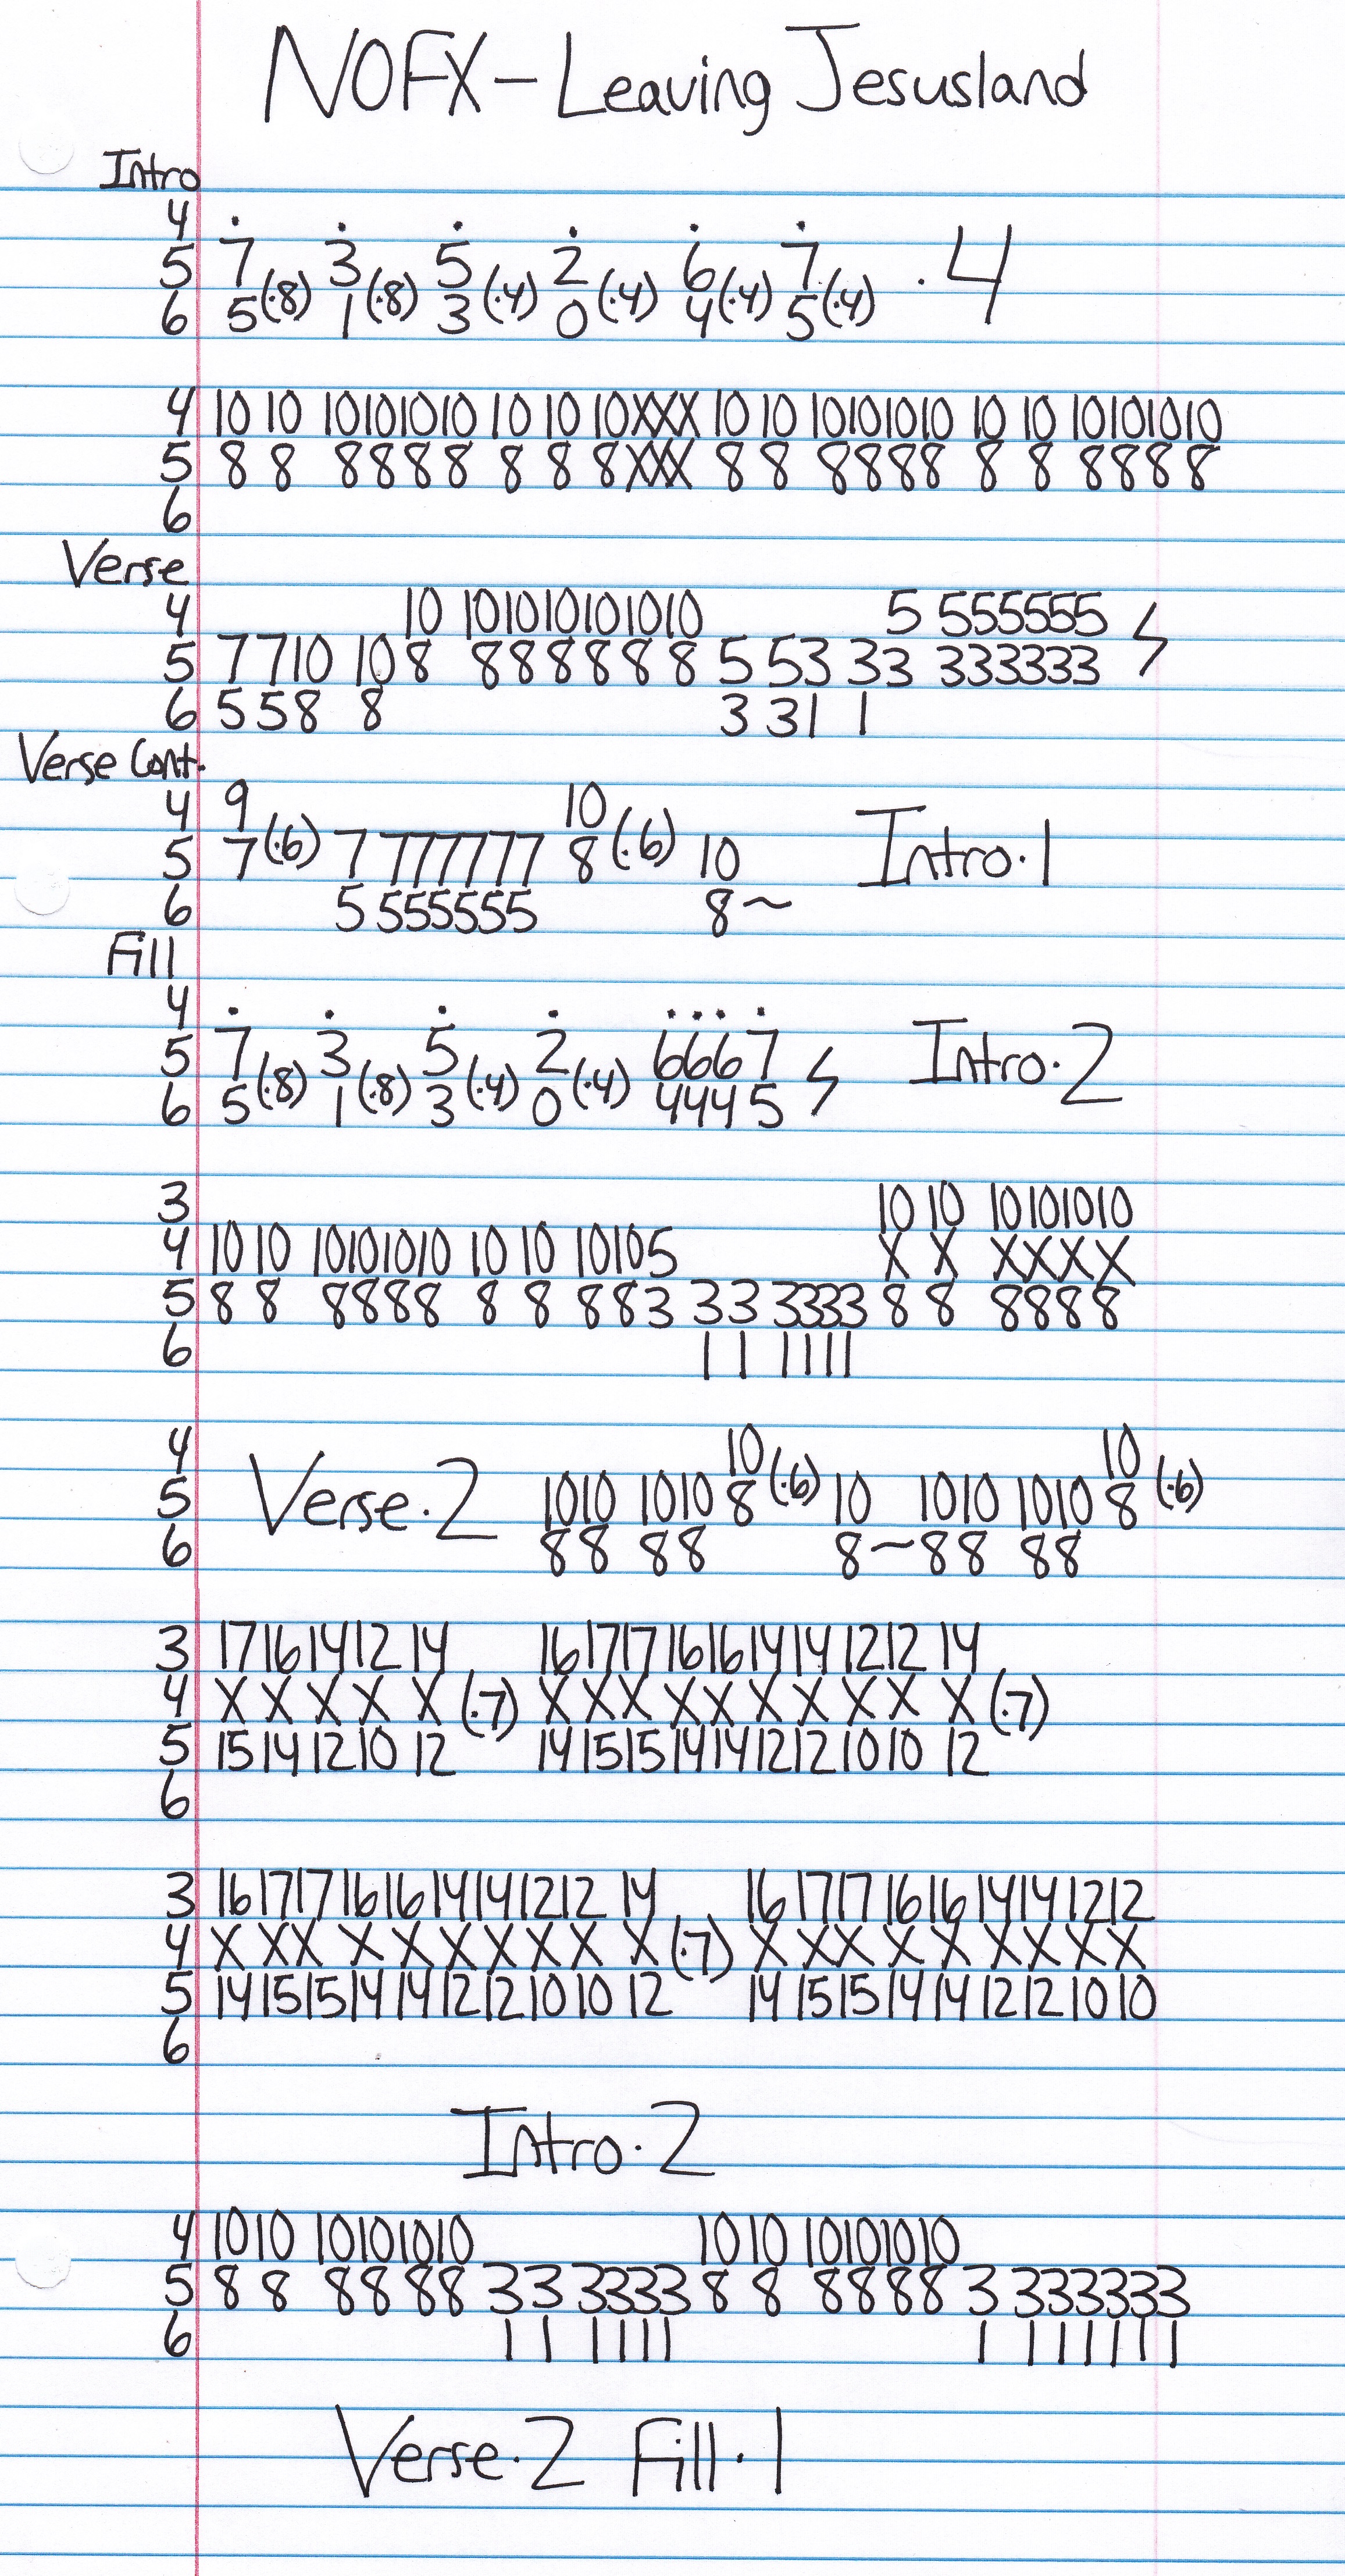 NOFX - Leaving Jesusland
Intro
4 . . . . . .
5 7 3 5 2 6 7 .4
(.8) (.8) (.4) (.4) (.4) (.4)
6 5 1 3 0 4 5
4 10 10 10101010 10 10 10XXX 10 10 10101010 10 10 10101010
5 8 8 8888 8 8 8XXX 8 8 8888 8 8 8888
6
Verse
4 10 101010101010 5 555555
5 7710 108 888888 5 53 33 333333
6 558 8 3 31 1
Verse Cont.
4 9 10
5 7(.6) 7 777777 8(.6) 10 Intro.1
6 5 555555 8~
Fill
4 . . . . ....
5 7 3 5 2 6667 Intro.2
(.8) (.8) (.4) (.4)
6 5 1 3 0 4445
3 10 10 10101010
4 10 10 10101010 10 10 10105 X X XXXX
5 8 8 8888 8 8 883 33 3333 8 8 8888
6 11 1111
4 10 10
5 Verse.2 1010 1010 8(.6) 10 1010 1010 8(.6)
6 88 88 8~88 88
3 1716141214 16171716161414121214
4 XXXXX(.7) XXXXXXXXXX(.7)
5 1514121012 14151514141212101012
6
3 16171716161414121214 161717161614141212
4 XXXXXXXXXX(.7) XXXXXXXXX
5 14151514141212101012 141515141412121010
6
Intro.2
4 1010 10101010 1010 10101010
5 8 8 8888 33 3333 8 8 8888 3 333333
6 11 1111 1 111111
Verse.2 Fill.1